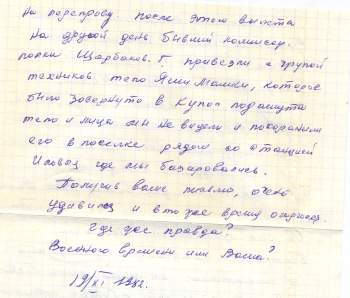 на переправу. после этого вылета
на другой день бывший комиссар
полка Щарбаков. Г. привезли с групой
техников тело Яши Мамки, которое
было завернуто в купол парашута
тело и лица мы не видели и похоранили
его в поселке рядом со станцией
Иловая где мы базаровались.
Получив ваше письмо, очень
удивился и в тоже время огорчился.
Где же правда?
Военного времени или Ваша?
19/XI